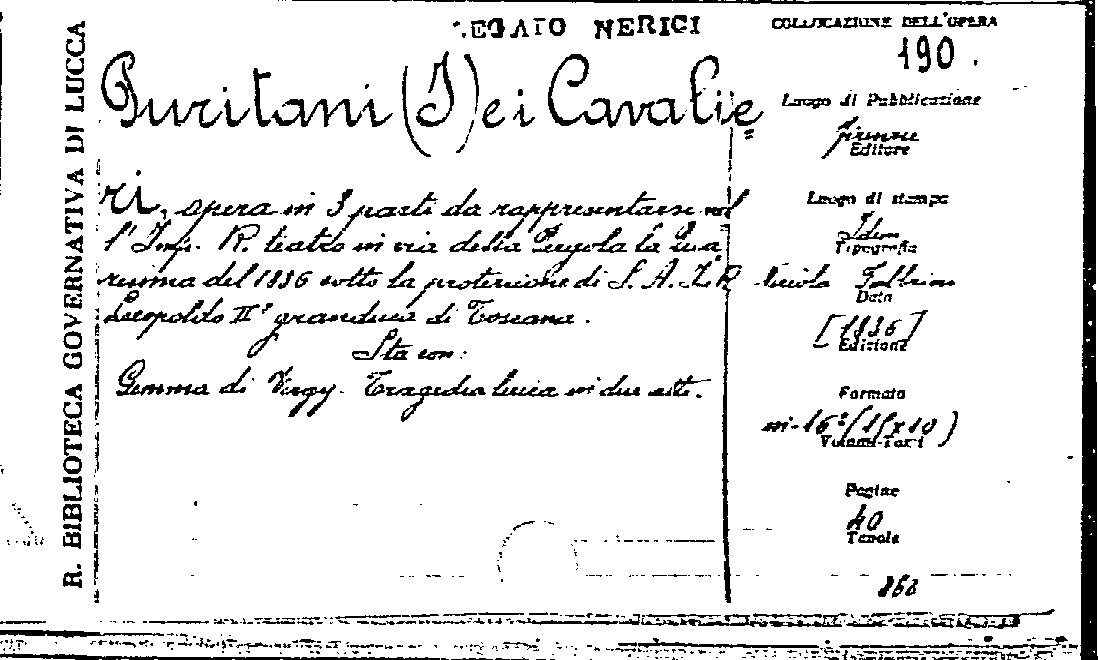 LEGATO NERICI
COLLOCAZIONE DELL'OPERA
190.
R. BIBLIOTECA GOVERNATIVA DI LUCCA
Puritani (I) e i Cavalie=
ri, opera in 3 parti da rappresentarsi nel
l'Imp. R. teatro in via della Pergola la Qua
resima del 1836 sotto la protezione di S. A. I. R.
Leopoldo II° granduca di Toscana.
Sta con:
Gemma di Vergy. Tragedia lirica in due atti.
Luogo di Pubblicazione
Firenze
Editore
Luogo di stampa
Idem
Tipografia
Nicola Fabbrini
Data
[1836]
Edizione
Formato
in-16° (15x10)
Volumi-Tomi
Pagine
40
Tavole